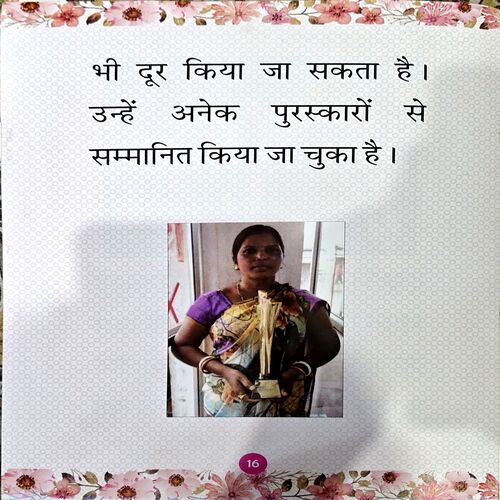 भी दूर किया जा सकता है।
उन्हें अनेक पुरस्कारों से
सम्मानित किया जा चुका है।
16